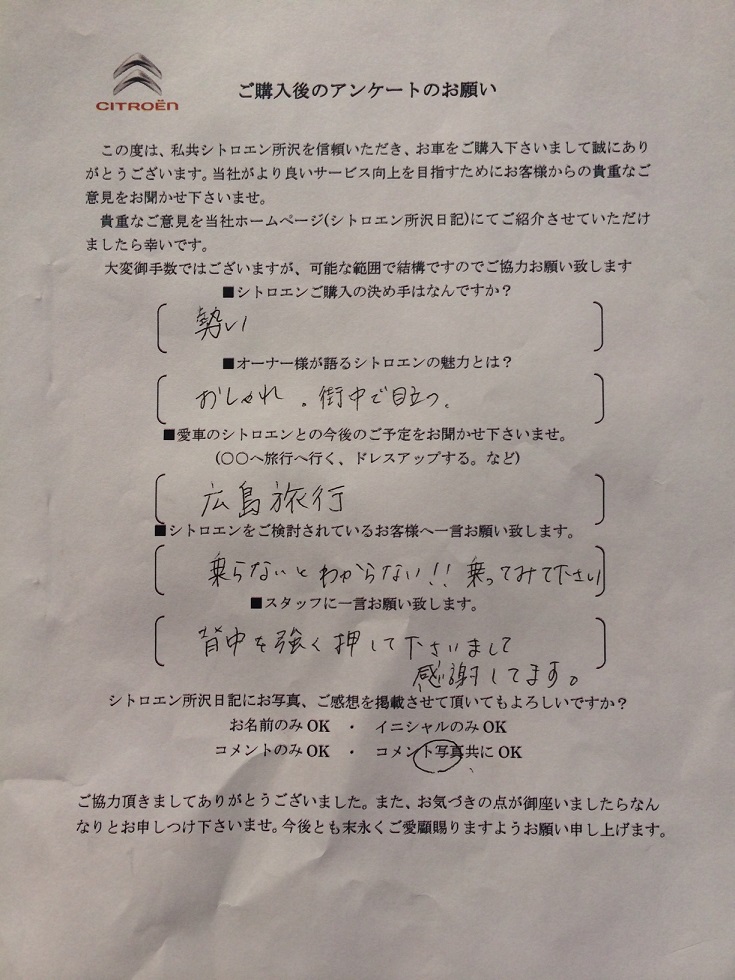 CITROËN
ご購入後のアンケートのお願い
この度は、私共シトロエン所沢を信頼いただき、お車をご購入下さいまして誠にあり
がとうございます。当社がより良いサービス向上を目指すためにお客様からの貴重なご
意見をお聞かせ下さいませ。
貴重なご意見を当社ホームページ(シトロエン所沢日記)にてご紹介させていただけ
ましたら幸いです。
大変御手数ではございますが、可能な範囲で結構ですのでご協力お願い致します
■シトロエンご購入の決め手はなんですか？
勢い
■オーナー様が語るシトロエンの魅力とは？
おしゃれ。街中で目立つ。
■愛車のシトロエンとの今後のご予定をお聞かせ下さいませ。
(○○へ旅行へ行く、ドレスアップする。など)
広島旅行
■シトロエンをご検討されているお客様へ一言お願い致します。
乗らないとわからない!! 乗ってみて下さい
■スタッフに一言お願い致します。
背中を強く押して下さいまして
感謝してます。
シトロエン所沢日記にお写真、ご感想を掲載させて頂いてもよろしいですか？
お名前のみ OK ・ イニシャルのみ OK
コメントのみ OK ・ コメント写真共に OK
ご協力頂きましてありがとうございました。また、お気づきの点が御座いましたらなん
なりとお申しつけ下さいませ。今後とも末永くご愛顧賜りますようお願い申し上げます。